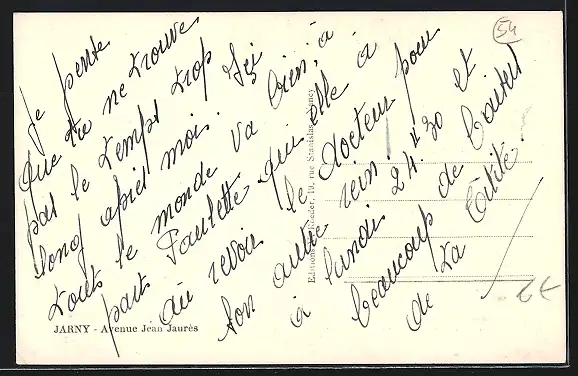 54
Je pense
que tu ne trouve
pas le temps trop
long après moi. Ici
tout le monde va bien, à
part Paulette qui elle a
au revoir le docteur pour
ton autre rein.
à lundi 24.II.30 et
beaucoup de baisers
de ta Titite.
Edition Schneider, 19, rue Stanislas, Nancy
JARNY - Avenue Jean Jaurès
2€